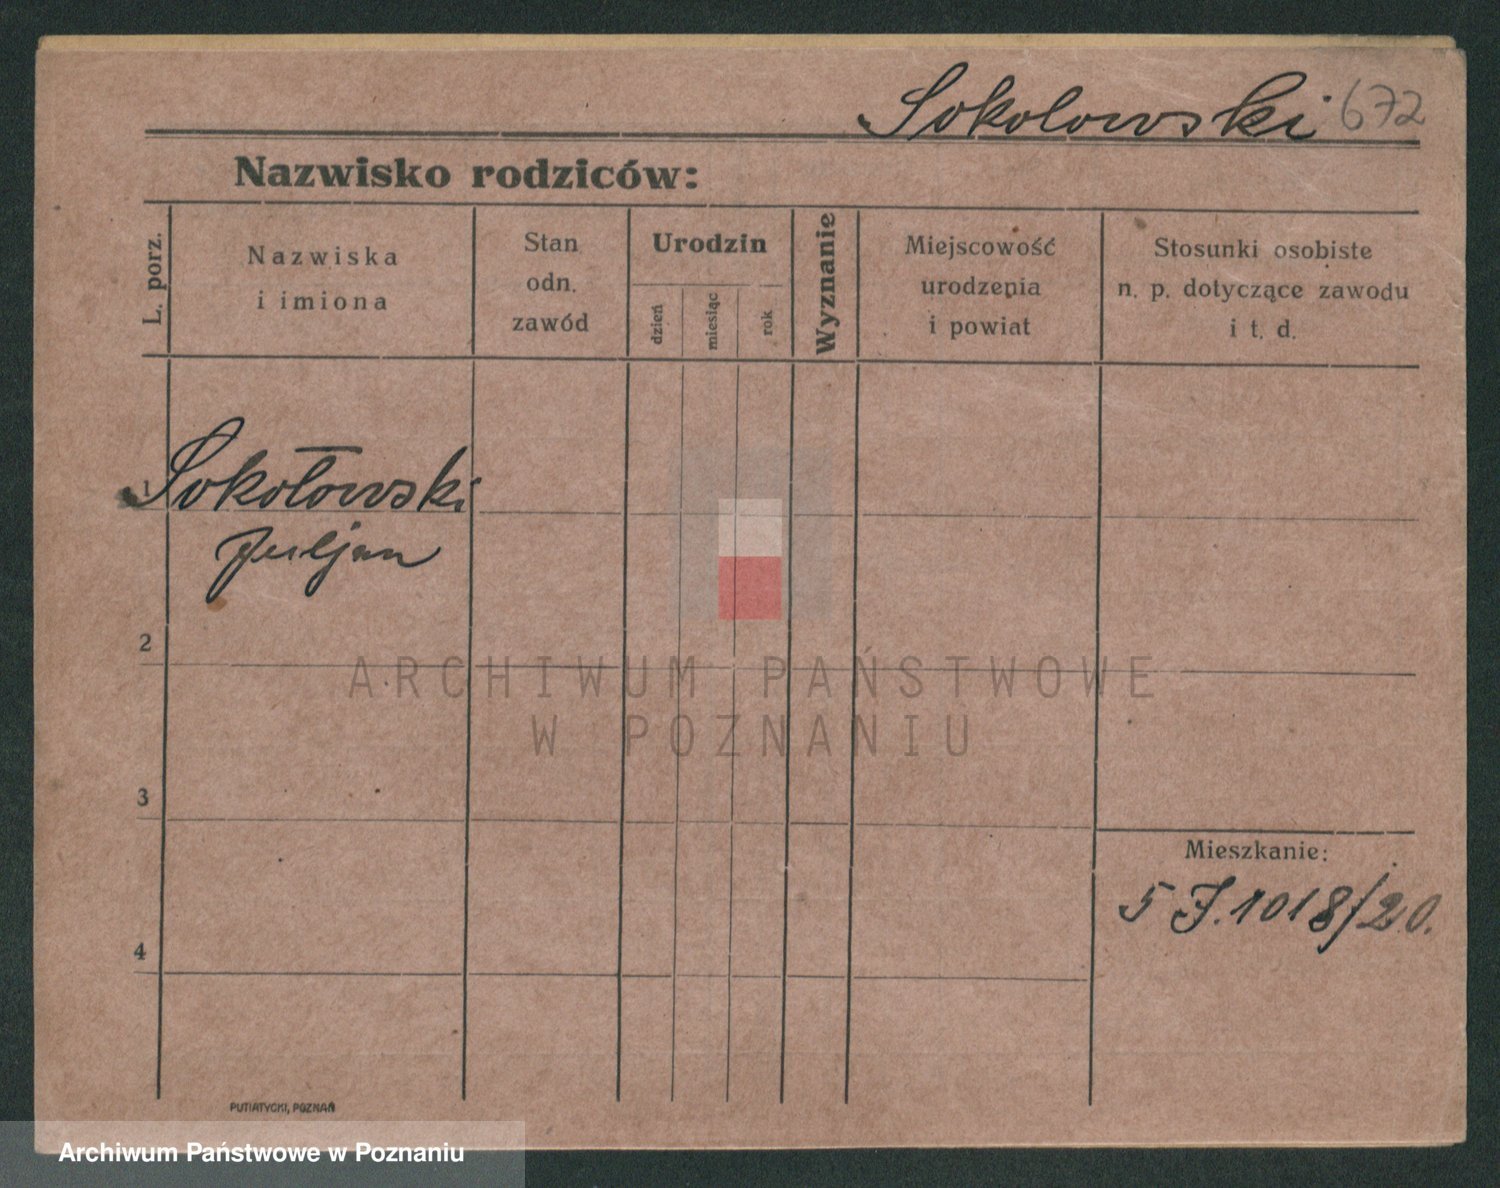 Sokolowski 672
Nazwisko rodziców:
L. porz.
Nazwiska
i imiona
Stan
odn.
zawód
Urodzin
dzień
miesiąc
rok
Wyznanie
Miejscowość
urodzenia
i powiat
Stosunki osobiste
n. p. dotyczące zawodu
i t. d.
1 Sokołowski
Juljan
2
3
4
Mieszkanie:
5 J. 1018/20.
ARCHIWUM PAŃSTWOWE
W POZNANIU
PUTIATYCKI, POZNAŃ
Archiwum Państwowe w Poznaniu